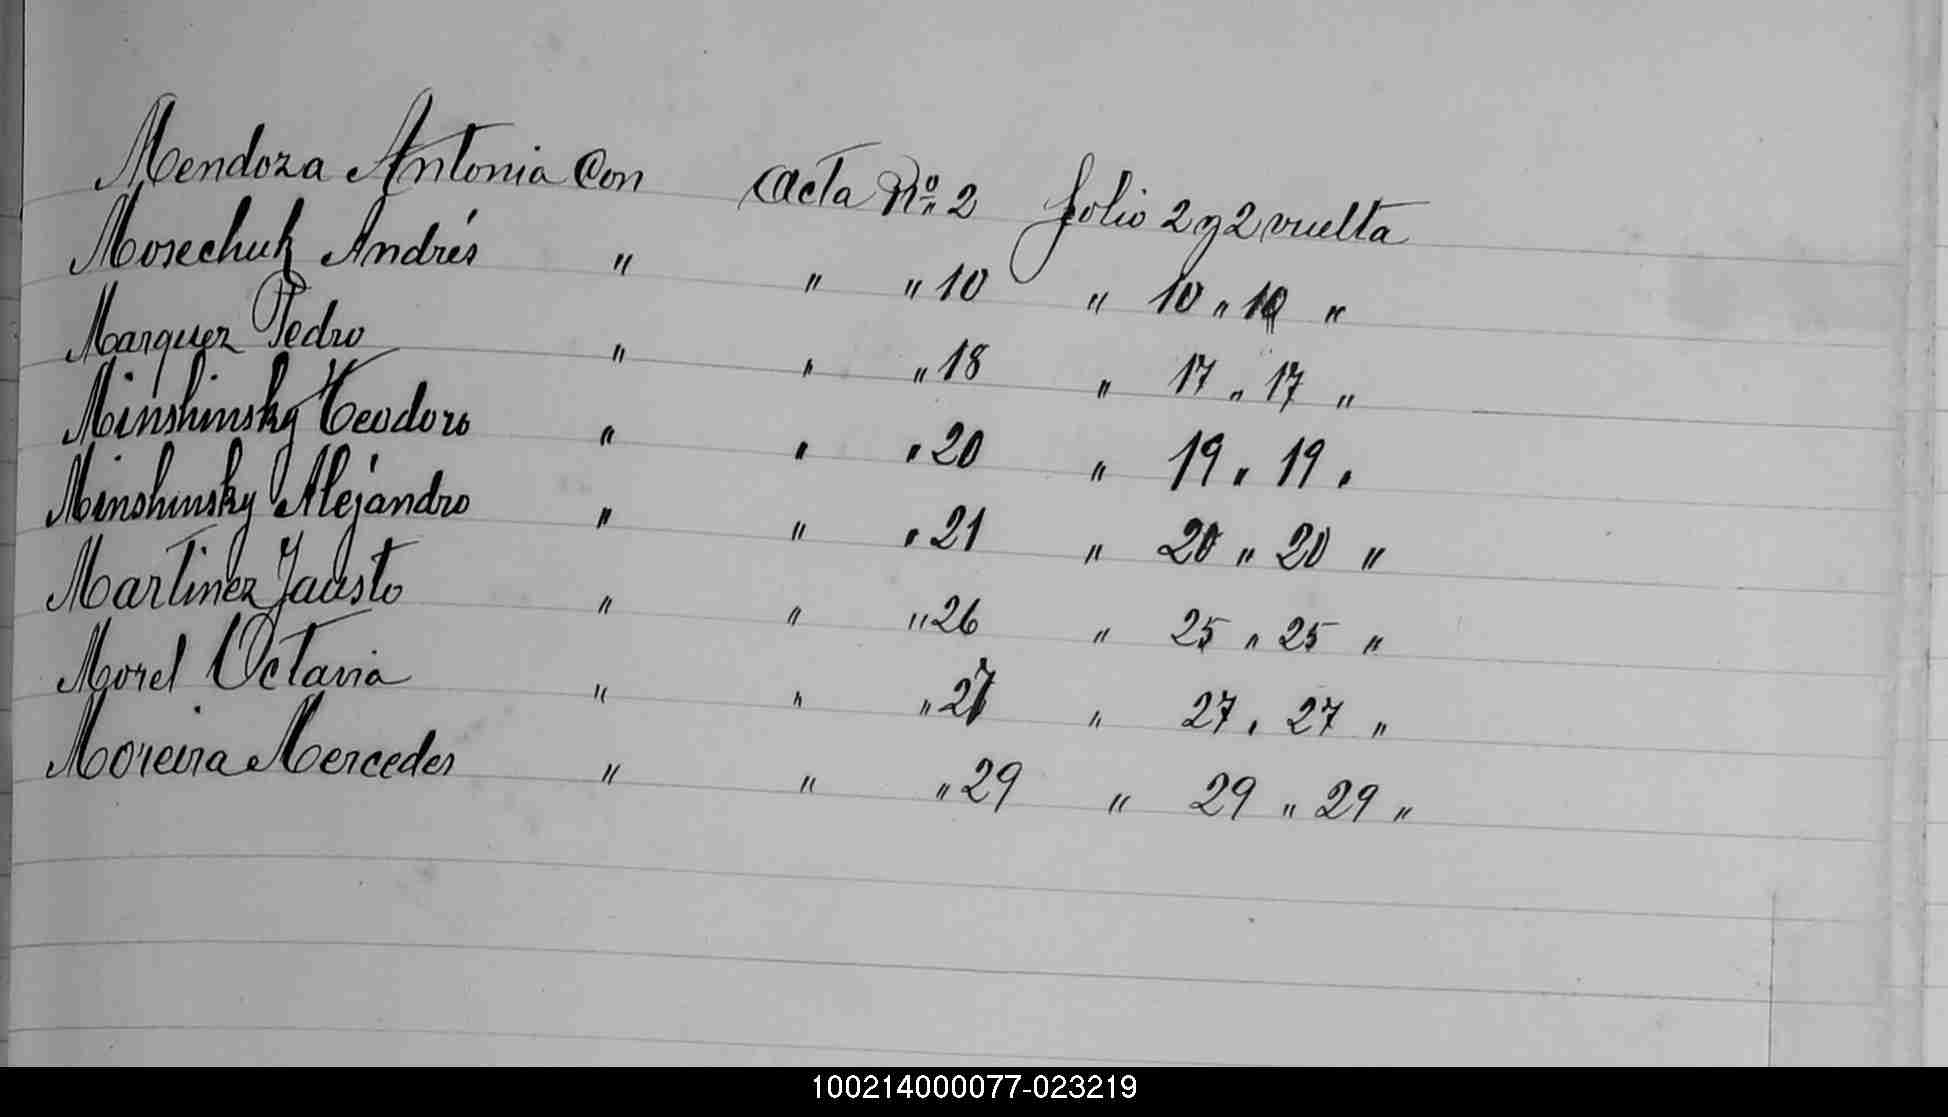 Mendoza Antonia Con Acta Nº 2 folio 2 y 2 vuelta
Mosechuk Andrés " " " 10 " 10 " 10 "
Marquez Pedro " " " 18 " 17 " 17 "
Minshinsky Teodoro " " " 20 " 19 " 19 "
Minshinsky Alejandro " " " 21 " 20 " 20 "
Martinez Fausto " " " 26 " 25 " 25 "
Morel Octavia " " " 27 " 27 " 27 "
Moreira Mercedes " " " 29 " 29 " 29 "
100214000077-023219